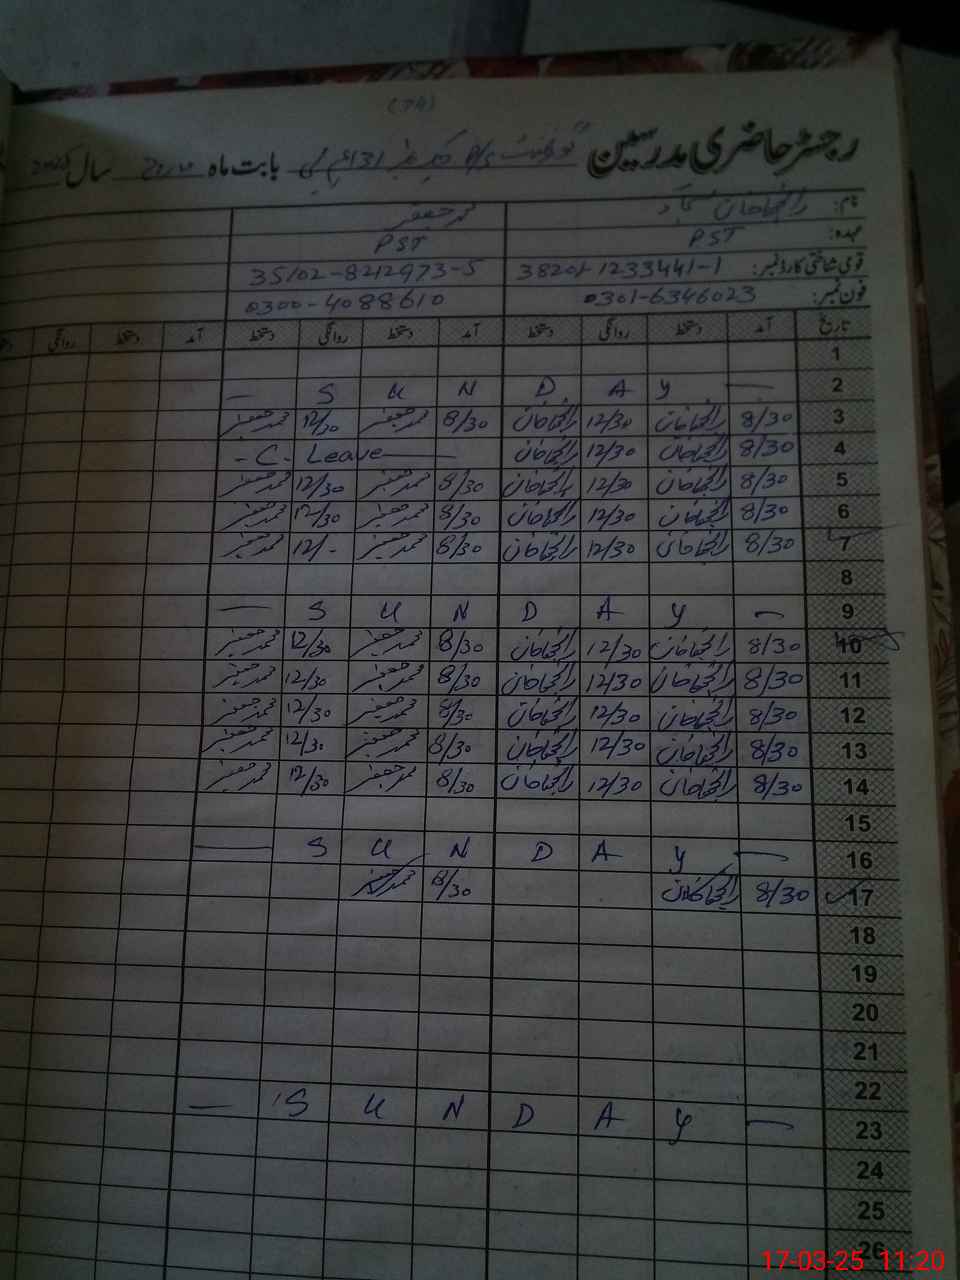 (74)
رجسٹر حاضری مدرسین گورنمنٹ P/S بابت ماہ مارچ سال
نام: رانجھا خان محمد جعفر
عہدہ: PST PST
قومی شناختی کارڈ نمبر: 38201-1233441-1 35102-8212973-5
فون نمبر: 0301-6346023 0300-4088610
تاریخ آمد دستخط روانگی دستخط آمد دستخط روانگی دستخط آمد دستخط روانگی
1
2 — S U N D A Y —
3 8/30 رانجھا خان 12/30 رانجھا خان 8/30 محمد جعفر 12/30 محمد جعفر
4 8/30 رانجھا خان 12/30 رانجھا خان - C - Leave —
5 8/30 رانجھا خان 12/30 رانجھا خان 8/30 محمد جعفر 12/30 محمد جعفر
6 8/30 رانجھا خان 12/30 رانجھا خان 8/30 محمد جعفر 12/30 محمد جعفر
7 8/30 رانجھا خان 12/30 رانجھا خان 8/30 محمد جعفر 12/- محمد جعفر
8
9 — S U N D A Y —
10 8/30 رانجھا خان 12/30 رانجھا خان 8/30 محمد جعفر 12/30 محمد جعفر
11 8/30 رانجھا خان 12/30 رانجھا خان 8/30 محمد جعفر 12/30 محمد جعفر
12 8/30 رانجھا خان 12/30 رانجھا خان 8/30 محمد جعفر 12/30 محمد جعفر
13 8/30 رانجھا خان 12/30 رانجھا خان 8/30 محمد جعفر 12/30 محمد جعفر
14 8/30 رانجھا خان 12/30 رانجھا خان 8/30 محمد جعفر 12/30 محمد جعفر
15
16 — S U N D A Y —
17 8/30 رانجھا خان 8/30 محمد جعفر
18
19
20
21
22
23 — S U N D A Y —
24
25
26
17-03-25 11:20